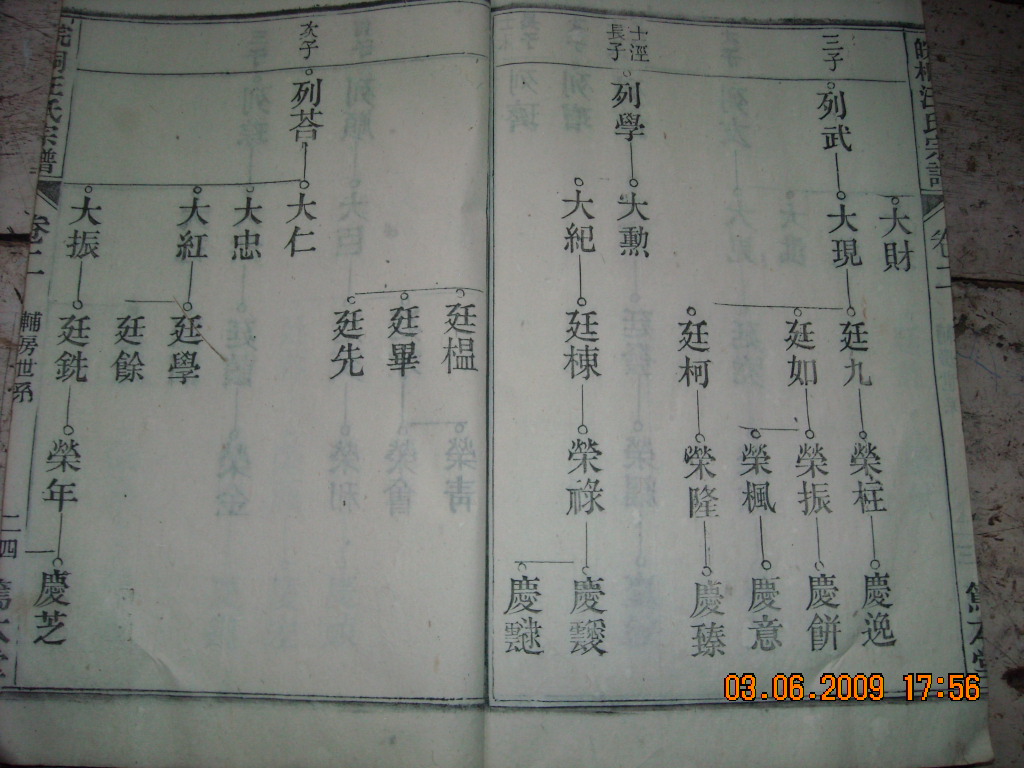 三子
列武
大財
大現
廷九
廷如
廷柯
榮枉
榮振
榮楓
榮隆
慶逸
慶餅
慶意
慶臻
士涇
長子
列學
大勳
大紀
廷棟
榮祿
慶
慶
次子
列荅
大仁
大忠
大紅
大振
廷榲
廷畢
廷先
廷學
廷餘
廷銑
榮年
慶芝
皖桐汪氏宗譜
卷二
輔房世系
二四
篤本堂
03.06.2009 17:56